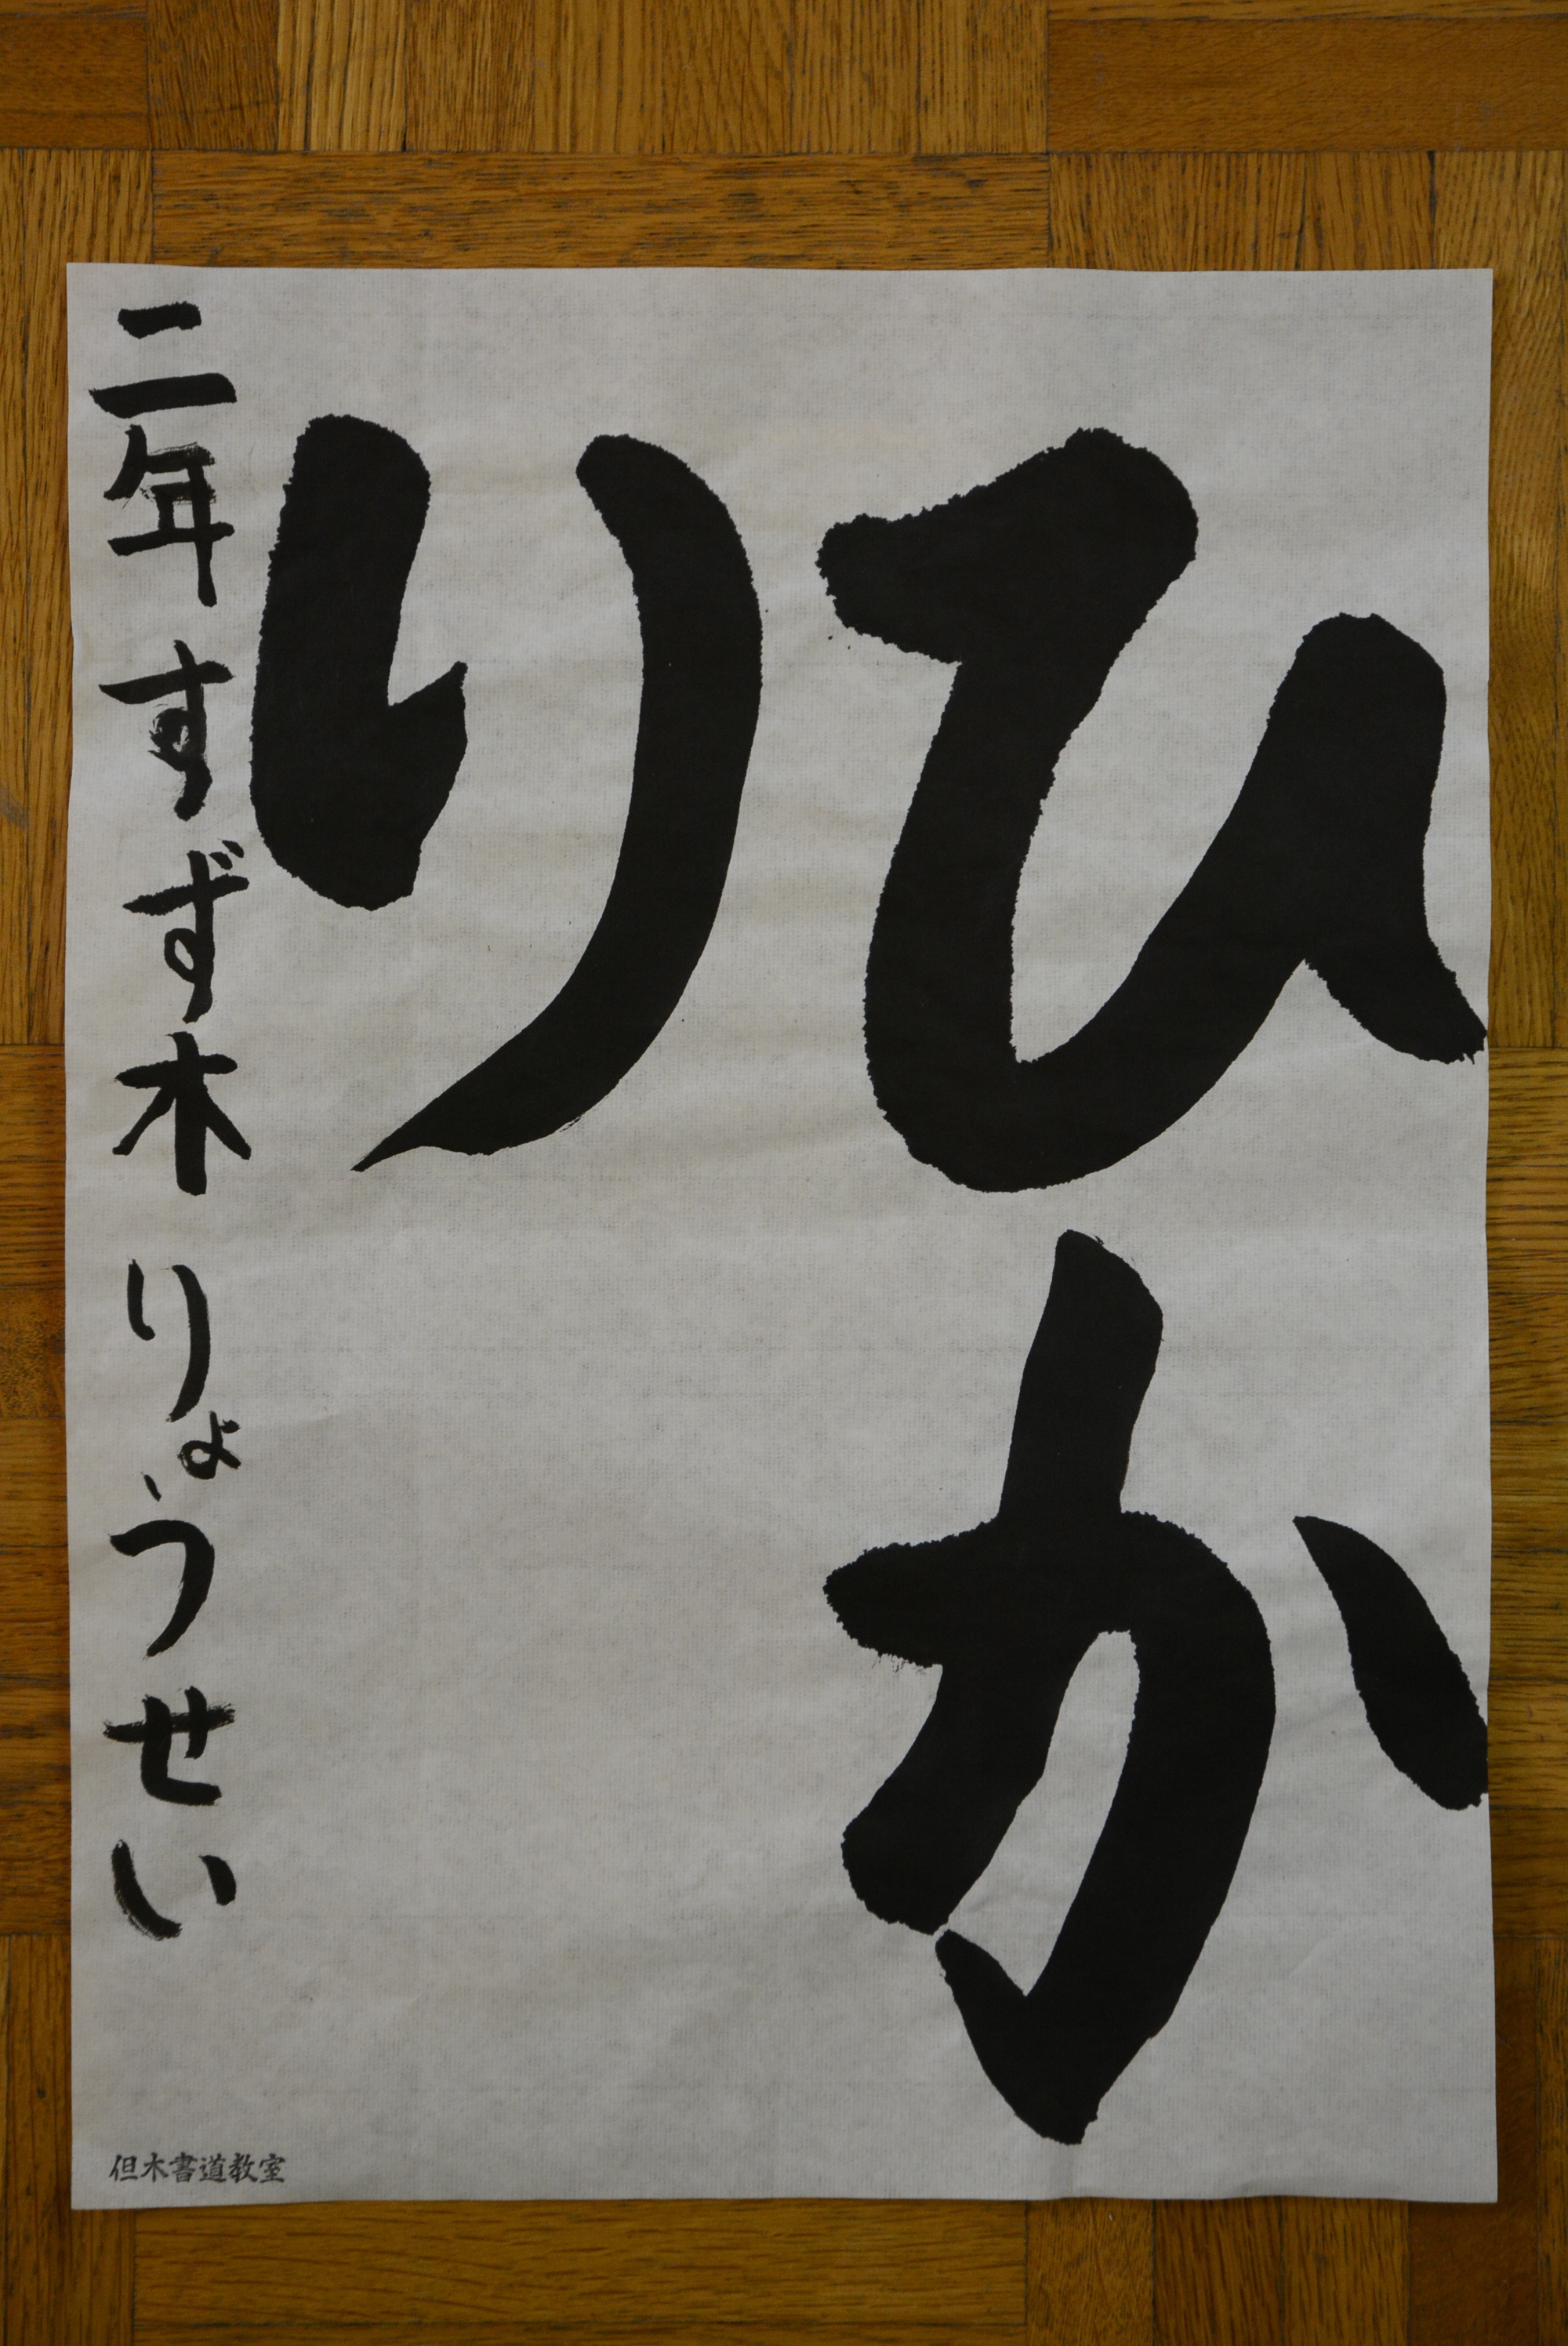 ひか
り
二年 すず木 りょうせい
但木書道教室